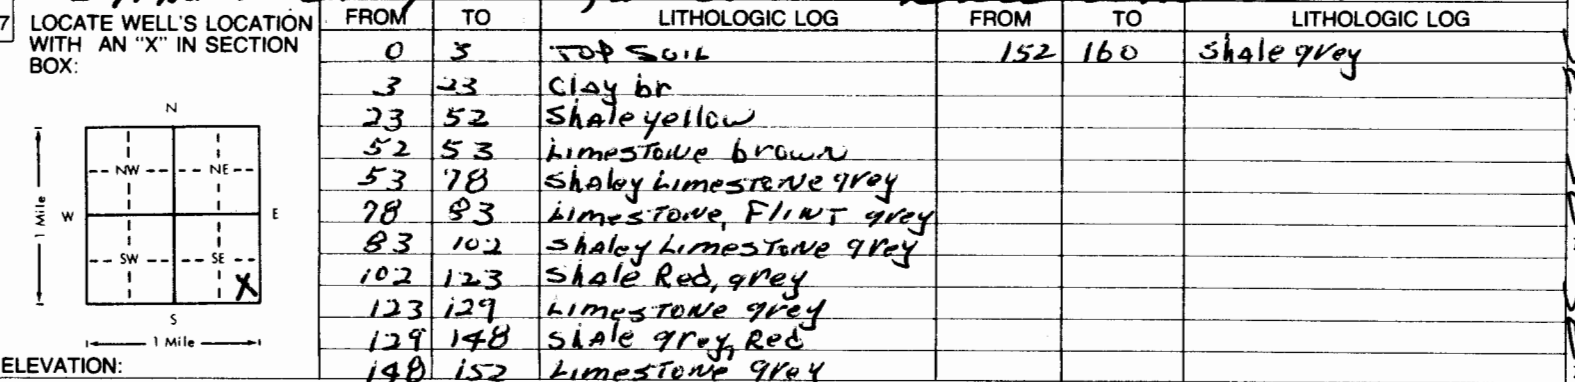 7 LOCATE WELL'S LOCATION WITH AN "X" IN SECTION BOX:
N
NW NE
W E
SW SE
X
S
1 Mile
1 Mile
ELEVATION:
FROM TO LITHOLOGIC LOG FROM TO LITHOLOGIC LOG
0 3 TOP SOIL 152 160 Shale grey
3 23 Clay br
23 52 Shale yellow
52 53 Limestone brown
53 78 Shaley Limestone grey
78 83 Limestone, FLINT grey
83 102 Shaley Limestone grey
102 123 Shale Red, grey
123 129 Limestone grey
129 148 Shale grey, Red
148 152 Limestone grey